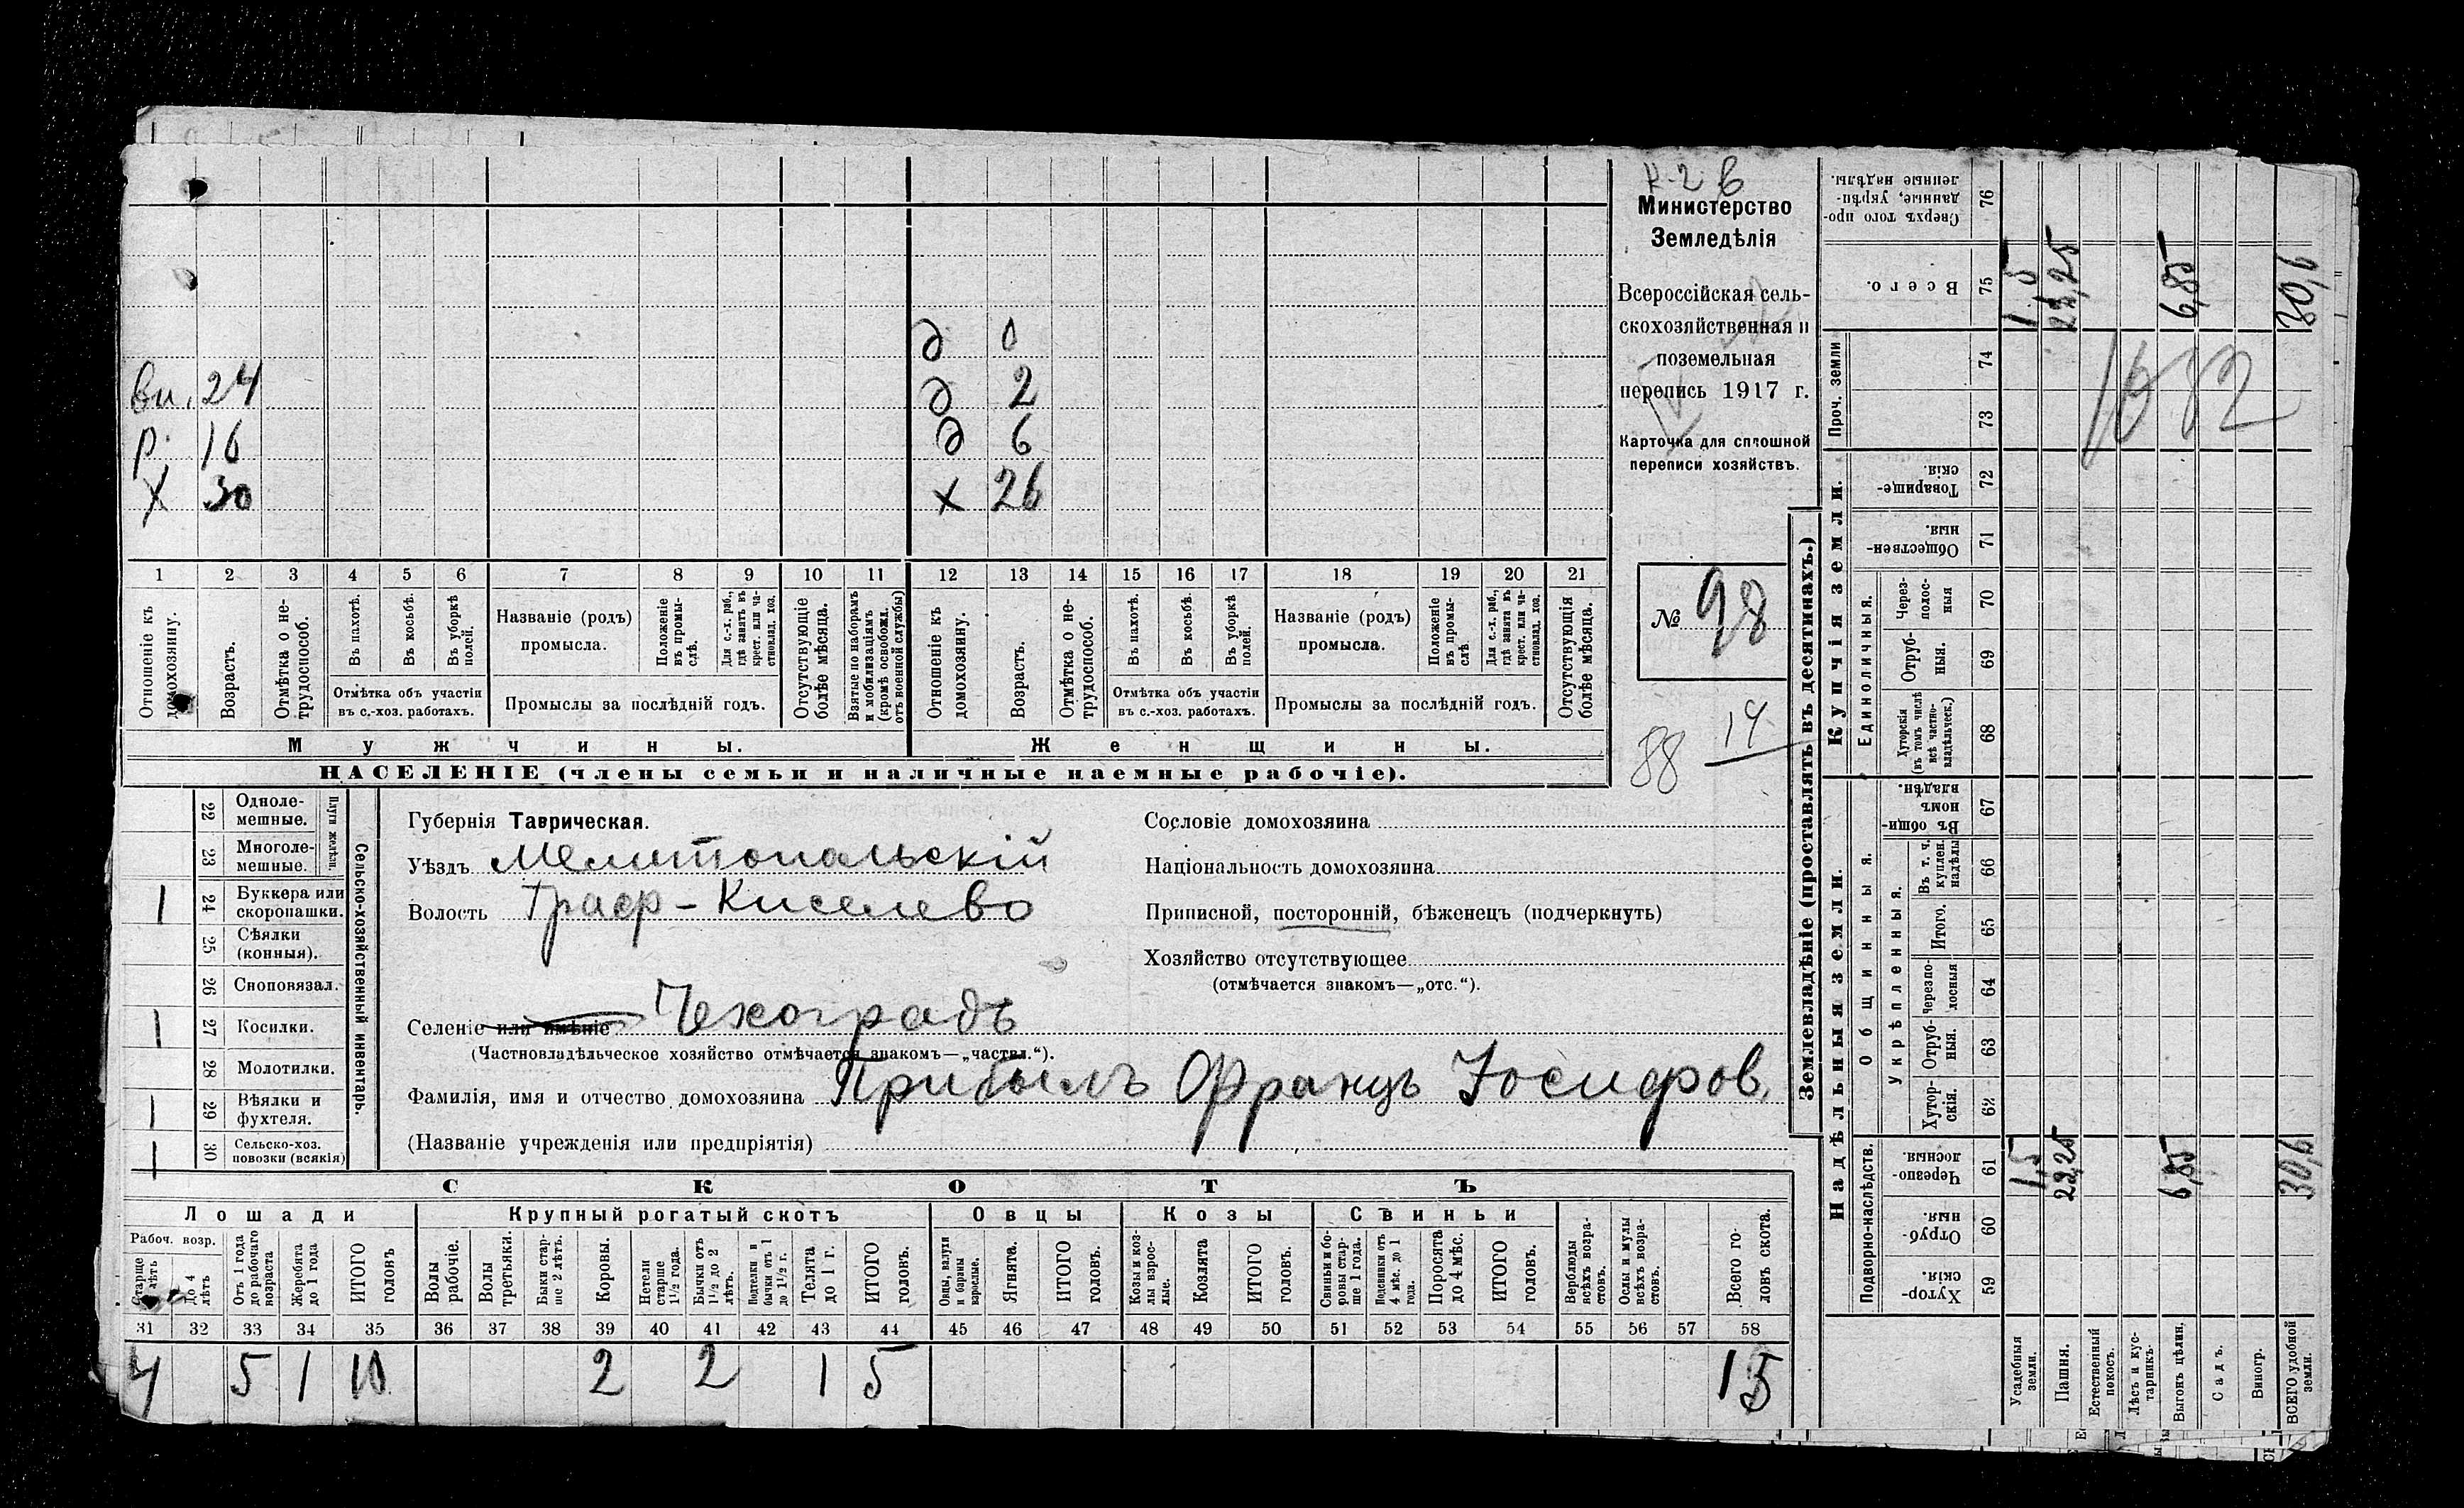 к-2 в
Министерство
Земледѣлія
Всероссійская сель-
скохозяйственная и
поземельная
перепись 1917 г.
Карточка для сплошной
переписи хозяйствъ.
№ 98
88
14
д 0
вп. 24 д 2
р. 16 д 6
х 30 х 26
1 2 3 4 5 6 7 8 9 10 11 12 13 14 15 16 17 18 19 20 21
Отношеніе къ домохозяину.
Возрастъ.
Отмѣтка о не-трудоспособ.
Въ пахотѣ.
Въ косьбѣ.
Въ уборкѣ полей.
Отмѣтка объ участіи
въ с.-хоз. работахъ.
Названіе (родъ)
промысла.
Положеніе въ промы-слѣ.
Для с.-х. раб., гдѣ занятъ въ крест. или ча-стновлад. хоз.
Промыслы за послѣдній годъ.
Отсутствующіе болѣе мѣсяца.
Взятые по наборамъ и мобилизаціямъ (кромѣ освобожд. отъ военной службы)
Отношеніе къ домохозяину.
Возрастъ.
Отмѣтка о не-трудоспособ.
Въ пахотѣ.
Въ косьбѣ.
Въ уборкѣ полей.
Отмѣтка объ участіи
въ с.-хоз. работахъ.
Названіе (родъ)
промысла.
Положеніе въ промы-слѣ.
Для с.-х. раб., гдѣ занята въ крест. или ча-стновлад. хоз.
Промыслы за послѣдній годъ.
Отсутствующія болѣе мѣсяца.
Мужчины. Женщины.
НАСЕЛЕНІЕ (члены семьи и наличные наемные рабочіе).
Сельско-хозяйственный инвентарь.
22 Одноле-мешные.
23 Многоле-мешные.
1 24 Буккера или скоропашки.
25 Сѣялки (конныя).
26 Сноповязал.
1 27 Косилки.
28 Молотилки.
1 29 Вѣялки и фухтеля.
1 30 Сельско-хоз. повозки (всякія)
Губернія Таврическая.
Уѣздъ Мелитопольскій
Волость Граф-Киселево
Селеніе или имѣніе Чехоградъ
(Частновладѣльческое хозяйство отмѣчается знакомъ—„частвл.“).
Фамилія, имя и отчество домохозяина Прибылъ Францъ Іосифов.
(Названіе учрежденія или предпріятія)
Сословіе домохозяина
Національность домохозяина
Приписной, посторонній, бѣженецъ (подчеркнуть)
Хозяйство отсутствующее
(отмѣчается знакомъ—„отс.“).
СКОТЪ
Лошади Крупный рогатый скотъ Овцы Козы Свиньи
Рабоч. возр.
Старше лѣтъ
До 4 лѣтъ
Отъ 1 года до рабочаго возраста
Жеребята до 1 года
ИТОГО головъ
Волы рабочіе.
Волы третьяки.
Быки стар-ше 2 лѣтъ.
Коровы.
Нетели старше 1½ года.
Бычки отъ 1½ до 2 лѣтъ.
Подтелки и бычки отъ 1 до 1½ г.
Телята до 1 г.
ИТОГО головъ.
Овцы, валухи и бараны взрослые.
Ягнята.
ИТОГО головъ.
Козы и коз-лы взрос-лые.
Козлята
ИТОГО головъ.
Свиньи и бо-ровы стар-ше 1 года.
Подсвинки отъ 4 мѣс. до 1 года.
Поросята до 4 мѣс.
ИТОГО головъ.
Верблюды всѣхъ возра-стовъ.
Ослы и мулы всѣхъ возра-стовъ.
Всего го-ловъ скота.
31 32 33 34 35 36 37 38 39 40 41 42 43 44 45 46 47 48 49 50 51 52 53 54 55 56 57 58
4 5 1 10 2 2 1 5 15
Землевладѣніе (проставлять въ десятинахъ.)
Надѣльныя земли. Купчія земли. Проч. земли
Подворно-наслѣдств.
Общинныя.
Укрѣпленныя.
Единоличныя.
Сверхъ того про-данные, укрѣп-ленные надѣлы. 76
Всего. 75 1,5 22,25 6,85 30,6
74
73
1682
Товарище-скія. 72
Обществен-ныя. 71
Через-полос-ныя 70
Отруб-ныя. 69
Хуторскія (въ томъ числѣ всѣ частно-владѣльческ.) 68
Въ общи-номъ владѣн. 67
Въ т. ч. куплен. надѣлы 66
Итого. 65
Черезпо-лосныя 64
Отруб-ныя. 63
Хутор-скія. 62
Черезпо-лосныя. 61 1,5 22,25 6,85 30,6
Отруб-ныя. 60
Хутор-скія. 59
Усадебныя земли.
Пашня.
Естественный покосъ.
Лѣсъ и кус-тарникъ.
Выгонъ цѣлин.
Садъ.
Виногр.
ВСЕГО удобной земли.